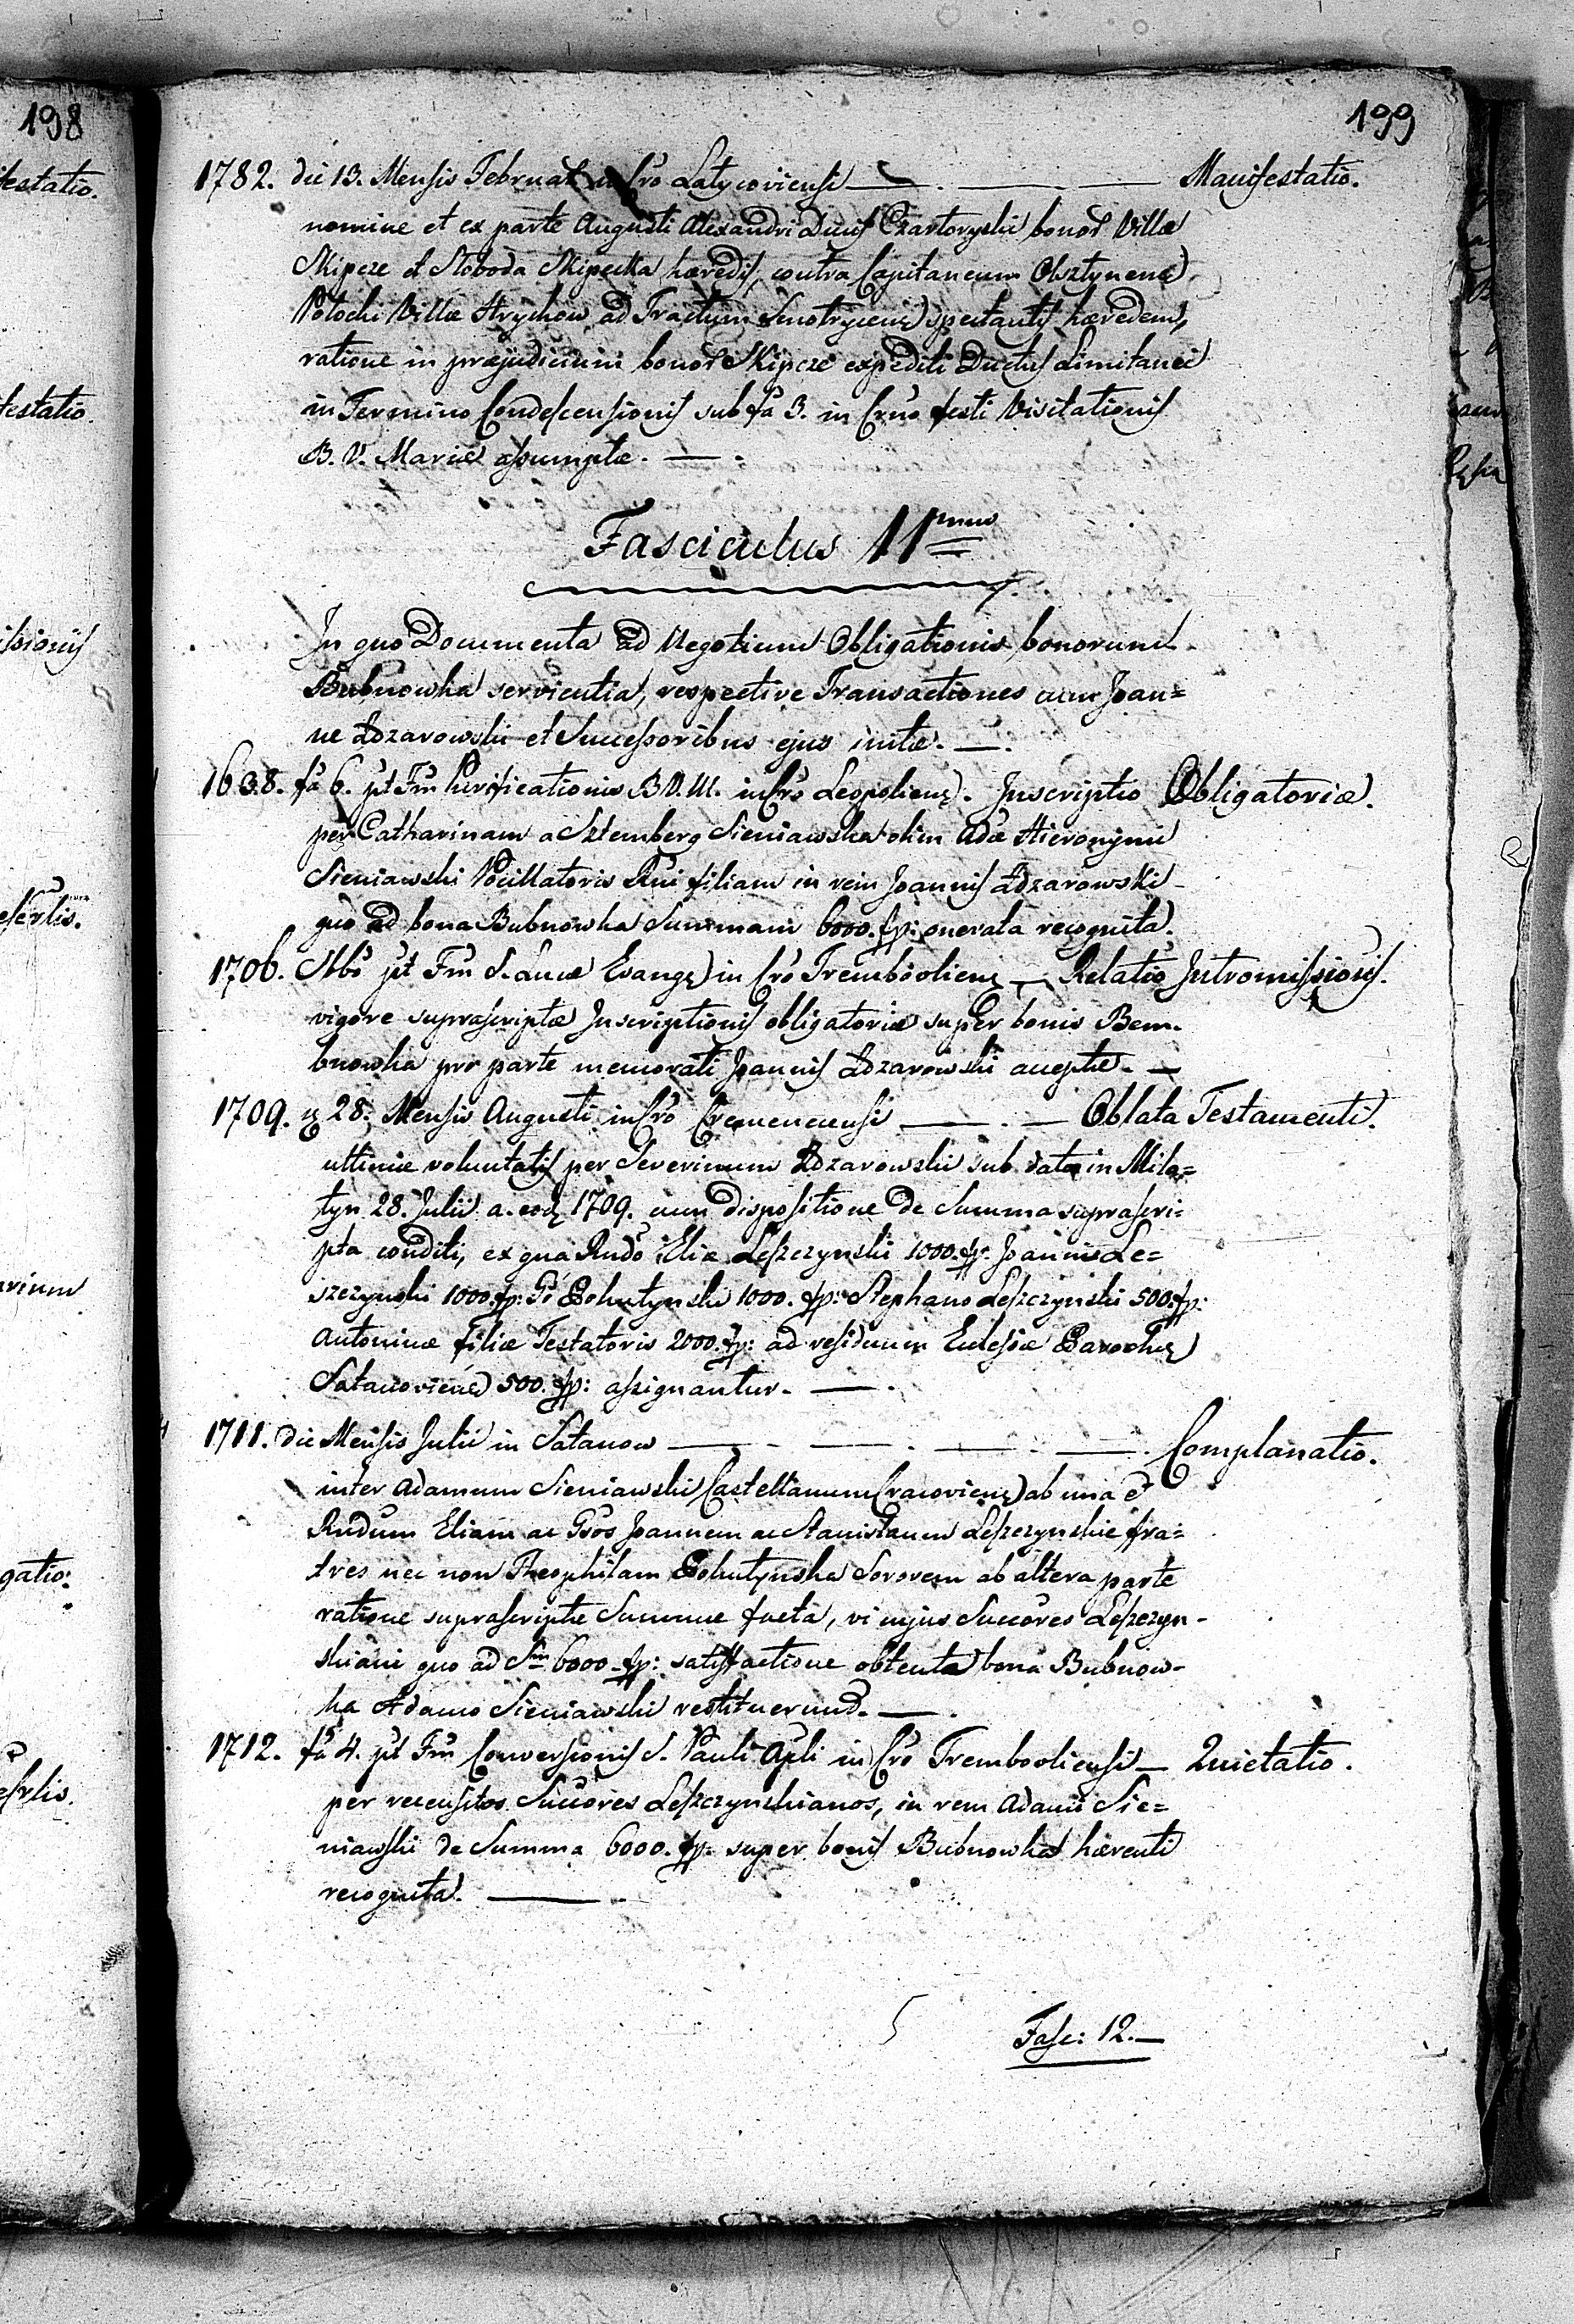 198
199
1782. die 13. Mensis Februar in Cro Latycoviensi — . — . — Manifestatio.
nomine et ex parte Augusti Alexandri Ducis Czartoryski bonor Villæ
Skipcze et Sloboda Skipecka hæredis, contra Capitaneum Olsztynens
Potocki Villæ Hrychow ad Tractum Smotrycens spectantis hæredem,
ratione in præjudicium bonor Skipcze expediti Ductus Limitanei
in Termino Condescensionis sub fa 3. in Crno festi Visitationis
B. V. Mariæ assumptæ. — .
Fasciculus 11mus
In quo Documenta ad Negotium Obligationis bonorum
Bubnowka servientia, respective Transactiones cum Joan=
ne Łozarowski et Successoribus ejus initæ. — .
1638. fa 6. pt Fm Purificationis B.V.M. in Cro Leopoliens. Inscriptio Obligatoriæ.
per Catharinam a Sztemberg Sieniawska olim Adæ Hieronymi
Sieniawski Pocillatoris Rni filiam in rem Joannis Łozarowski
quo ad bona Bubnowka Summam 6000. fp: onerata recognita.
1706. Sbbo pt Fm S. Lucæ Evang in Cro Trembovliens — Relatio Intromissionis.
vigore suprascriptæ Inscriptionis obligatoriæ super bonis Bem-
bnowka pro parte memorati Joannis Łozarowski acceptæ. —
1709. 28. Mensis Augusti in Cro Cremenecensi — . — Oblata Testamenti.
ultimæ voluntatis per Severinum Łozarowski sub data in Mila=
tyn 28. Julii a. eod 1709. cum dispositione de Summa suprascri=
pta conditi, ex qua Rndo Eliæ Leszczynski 1000. fp. Joannis Le=
szczynski 1000. fp: Gr Bohutynski 1000. fp: Stephano Leszczynski 500. fp:
Antoninæ filiæ Testatoris 2000. fp: ad residuum Ecclesiæ Paroch
Satanoviens 500. fp: assignantur. — .
1711. die Mensis Julii in Satanow — . — . — . — . Complanatio.
inter Adamum Sieniawski Castellanum Cracoviens ab una et
Rndum Eliam ac Gsos Joannem ac Stanislaum Leszczynskie fra=
tres nec non Theophilam Bohutynska Sororem ab altera parte
ratione suprascriptæ Summæ facta, vi cujus Succores Leszczyn-
skiani quo ad Sm 6000. fp: satisfactione obtenta bona Bubnow-
ka Adamo Sieniawski restituerund. — .
1712. fa 4. pt Fm Conversionis S. Pauli Apli in Cro Trembovliensi — Quietatio.
per recensitos Succores Leszczynskianos, in rem Adami Sie=
niawski de Summa 6000. fp. super bonis Bubnowka hærenti
recognita. —
Fasc: 12. —